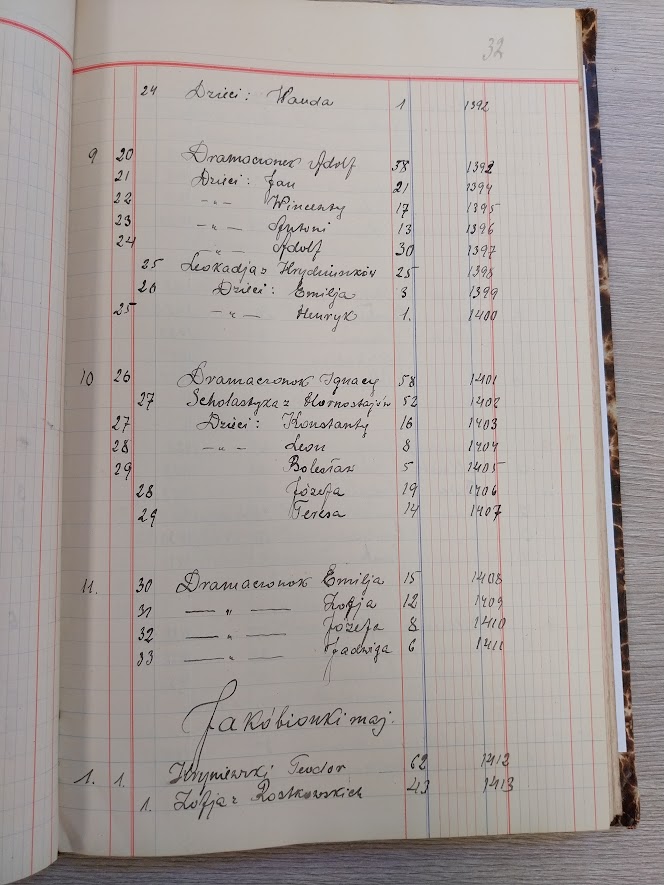 32
24 Dzieci: Wanda 1 1392
9 20 Dramaczonek Adolf 58 1392
21 Dzieci: Jan 21 1394
22 -„- Wincenty 17 1395
23 -„- Antoni 13 1396
24 -„- Adolf 30 1397
25 Leokadja z 25 1398
26 Dzieci: Emilja 3 1399
25 -„- Henryk 1. 1400
10 26 Dramaczonok Ignacy 58 1401
27 Scholastyka z Hornostajów 52 1402
27 Dzieci: Konstanty 16 1403
28 -„- Leon 8 1404
29 Bolesław 5 1405
28 Józefa 19 1406
29 Teresa 14 1407
11. 30 Dramaczonok Emilja 15 1408
31 —„— Zofja 12 1409
32 —„— Józefa 8 1410
33 —„— Jadwiga 6 1411
Jakóbionki maj.
1. 1. Hryniewski Teodor 62 1412
1. Zofja z Rostkowskich 43 1413